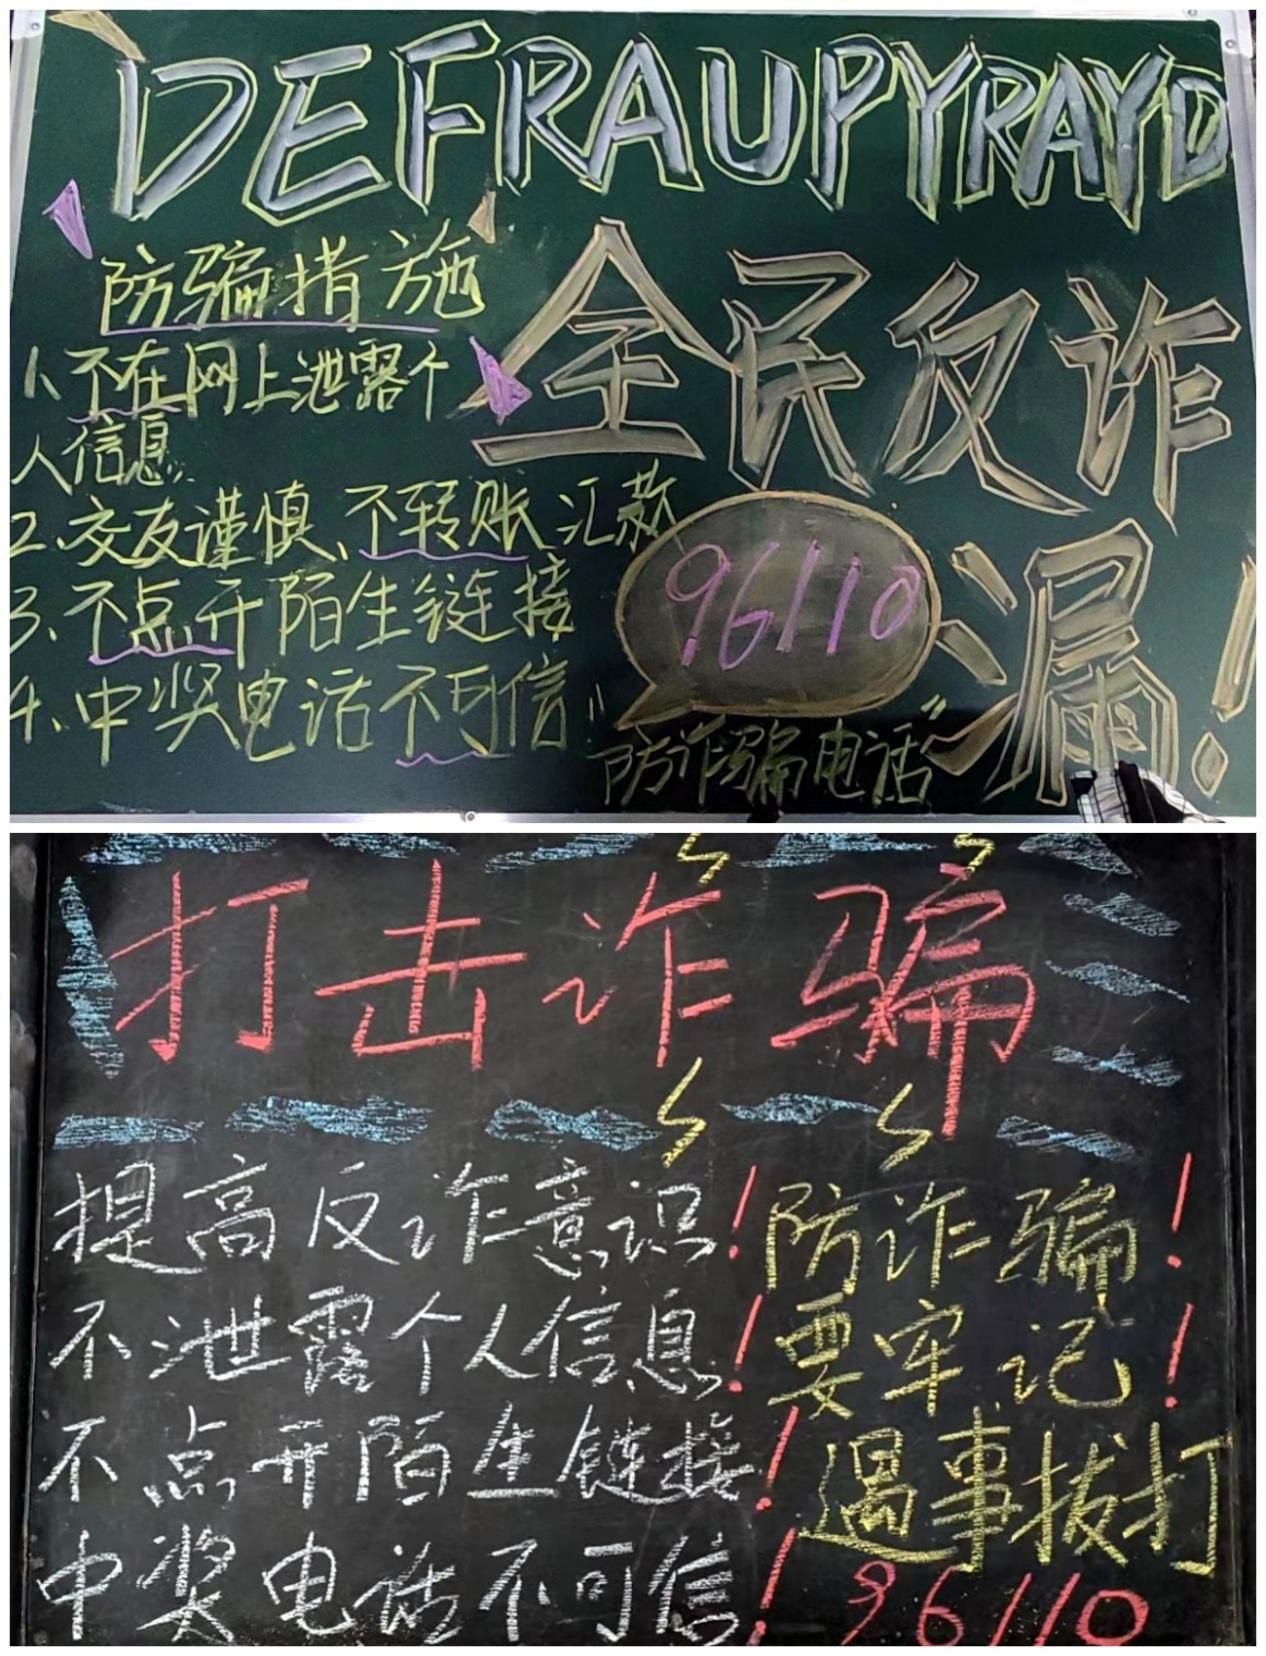 DEFRAUPYRAYD
防骗措施
1、不在网上泄露个
人信息.
2、交友谨慎、不转账汇款
3、不点开陌生链接
4、中奖电话不可信
全民反诈
漏!
96110
"防诈骗电话"
打击诈骗
提高反诈意识!
不泄露个人信息!
不点开陌生链接!
中奖电话不可信!
防诈骗!
要牢记!
遇事拔打
96110